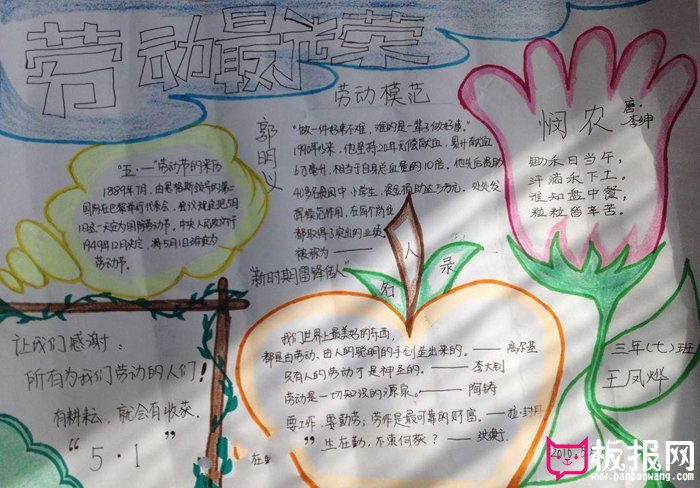 劳动最光荣
"五·一"劳动节的来历
1889年7月,由恩格斯领导的第二
国际在巴黎举行代表会,会议规定把5月
1日这一天定为国际劳动节。中央人民政府于
1949年12月决定,将5月1日确定为
劳动节。
劳动模范
郭明义
"做一件好事不难,难的是一辈子做好事。"
1990年以来,他坚持20年无偿献血,累计献血
6万毫升,相当于自身总血量的10倍。他先后资助
40多名贫困中小学生,资金捐助达
处处发
挥模范作用,在每个岗位
都取得了突出的业绩。
被称为——
"新时期雷锋传人"
悯农
唐·
李绅
锄禾日当午,
汗滴禾下土。
谁知盘中餐,
粒粒皆辛苦。
名人录
我们世界上最美好的东西,
都是由劳动、由人的聪明的手创造出来的。——高尔基
只有人的劳动才是神圣的。——
劳动是一切知识的源泉。——陶铸
要工作,要勤劳,劳作是最可靠的财富。——拉·封丹
"生在勤,不索何获?——
让我们感谢:
所有为我们劳动的人们!
有耕耘,就会有收获。
"5·1"
三年(七)班
王凤烨
板报网
www.banbaowang.com